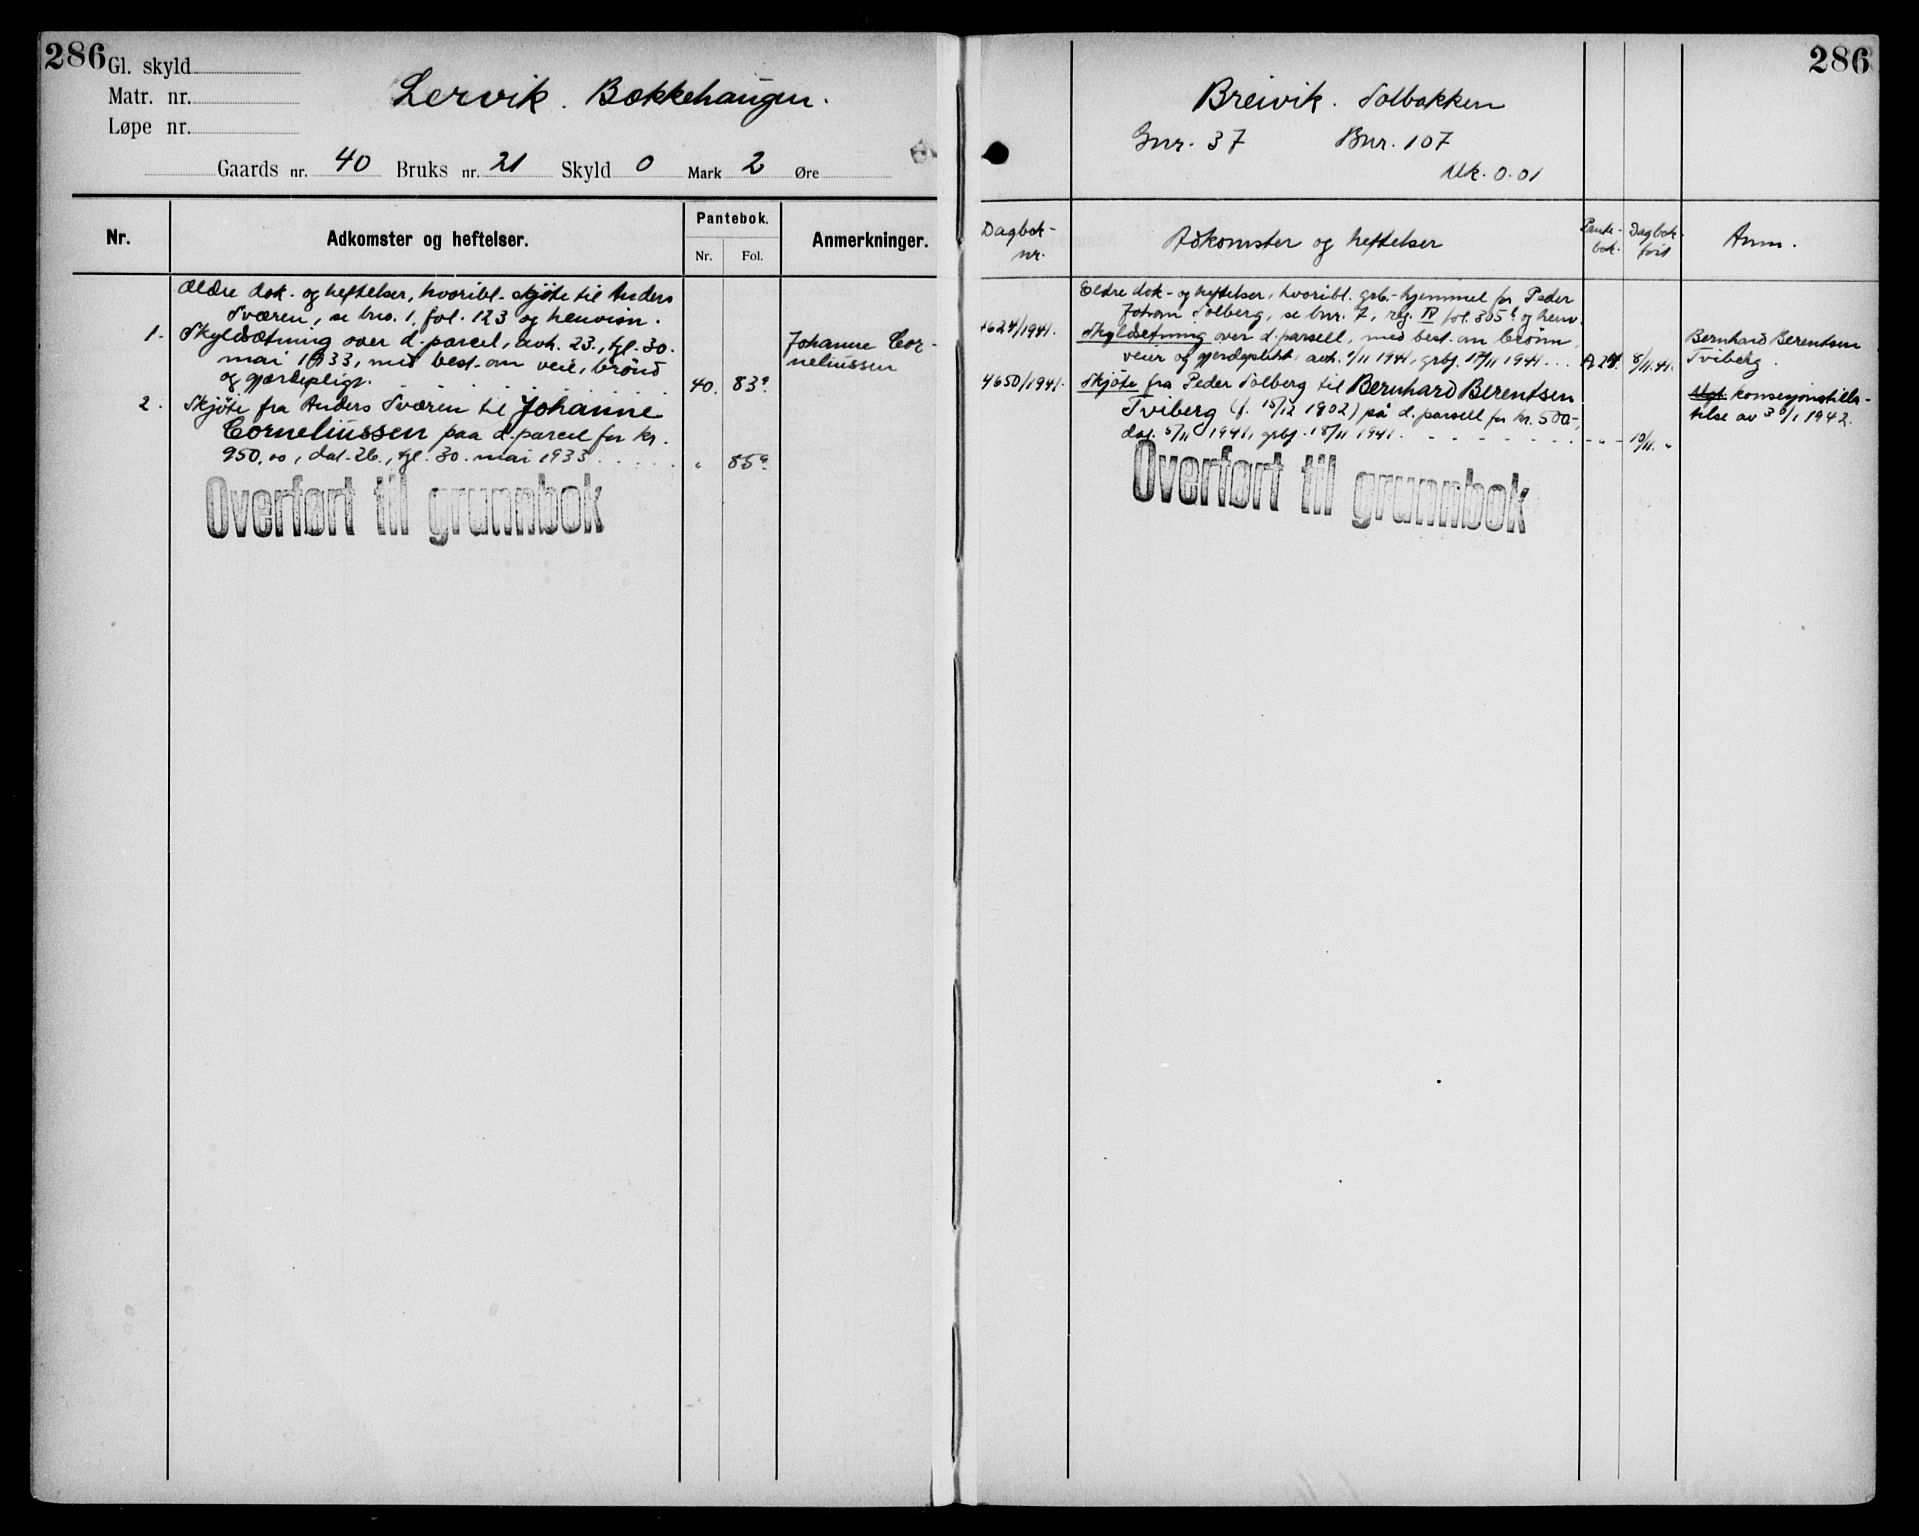 286
Gl. skyld
Matr. nr.
Løpe nr.
Lervik. Bækkehaugen.
Gaards nr. 40 Bruks nr. 21 Skyld 0 Mark 2 Øre
Nr.
Adkomster og heftelser.
Pantebok.
Nr. Fol.
Anmerkninger.
Ældre dok. og heftelser, hvoribl. skjöte til Anders
Sværen, se bno. 1, fol. 123 og henvisn.
1. Skyldsætning over d. parcel, avh. 23., tgl. 30.
mai 1933, med best. om vei, brönd
og gjærdepligt. 40. 83
Johanne Cor-
neliussen
2. Skjöte fra Anders Sværen til Johanne
Corneliussen paa d. parcel for kr.
950.00, dat. 26., tgl. 30. mai 1933 . . . . . " 85
Overført til grunnbok
286
Breivik. Solbakken
Gnr. 37 Bnr. 107
Mk. 0.01
Dagbok-
nr.
Adkomster og heftelser
Pante-
bok.
Dagbok-
ført
Anm.
Eldre dok- og heftelser, hvoribl. grb.-hjemmel for Peder
Johan Solberg, se bnr. 7, reg. IV fol. 305 og henv.
4624/1941. Skyldsetning over d. parsell, med best. om brönn,
veier og gjerdeplikt, avh. 1/11 1941, grbf. 17/11 1941 . . . A 24. 8/11.41.
Bernhard Berentsen
Tviberg.
4650/1941. Skjöte fra Peder Solberg til Bernhard Berentsen
Tviberg (f. 15/12 1902) på d. parsell for kr. 500-,
dat. 5/11 1941, grbf. 18/11 1941. - - - - - - - - - 10/11. "
konsesjonstilla-
telse av 30/1 1942.
Overført til grunnbok